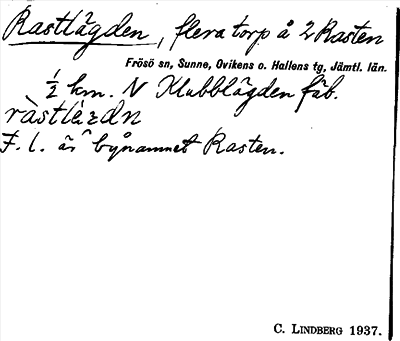 Rastlägden, flera torp å 2 Rasten
Frösö sn, Sunne, Ovikens o. Hallens tg, Jämtl. län.
½ km. N Klubblägden fäb.
ràstlèɛdn
F. l. är bynamnet Rasten.
C. LINDBERG 1937.